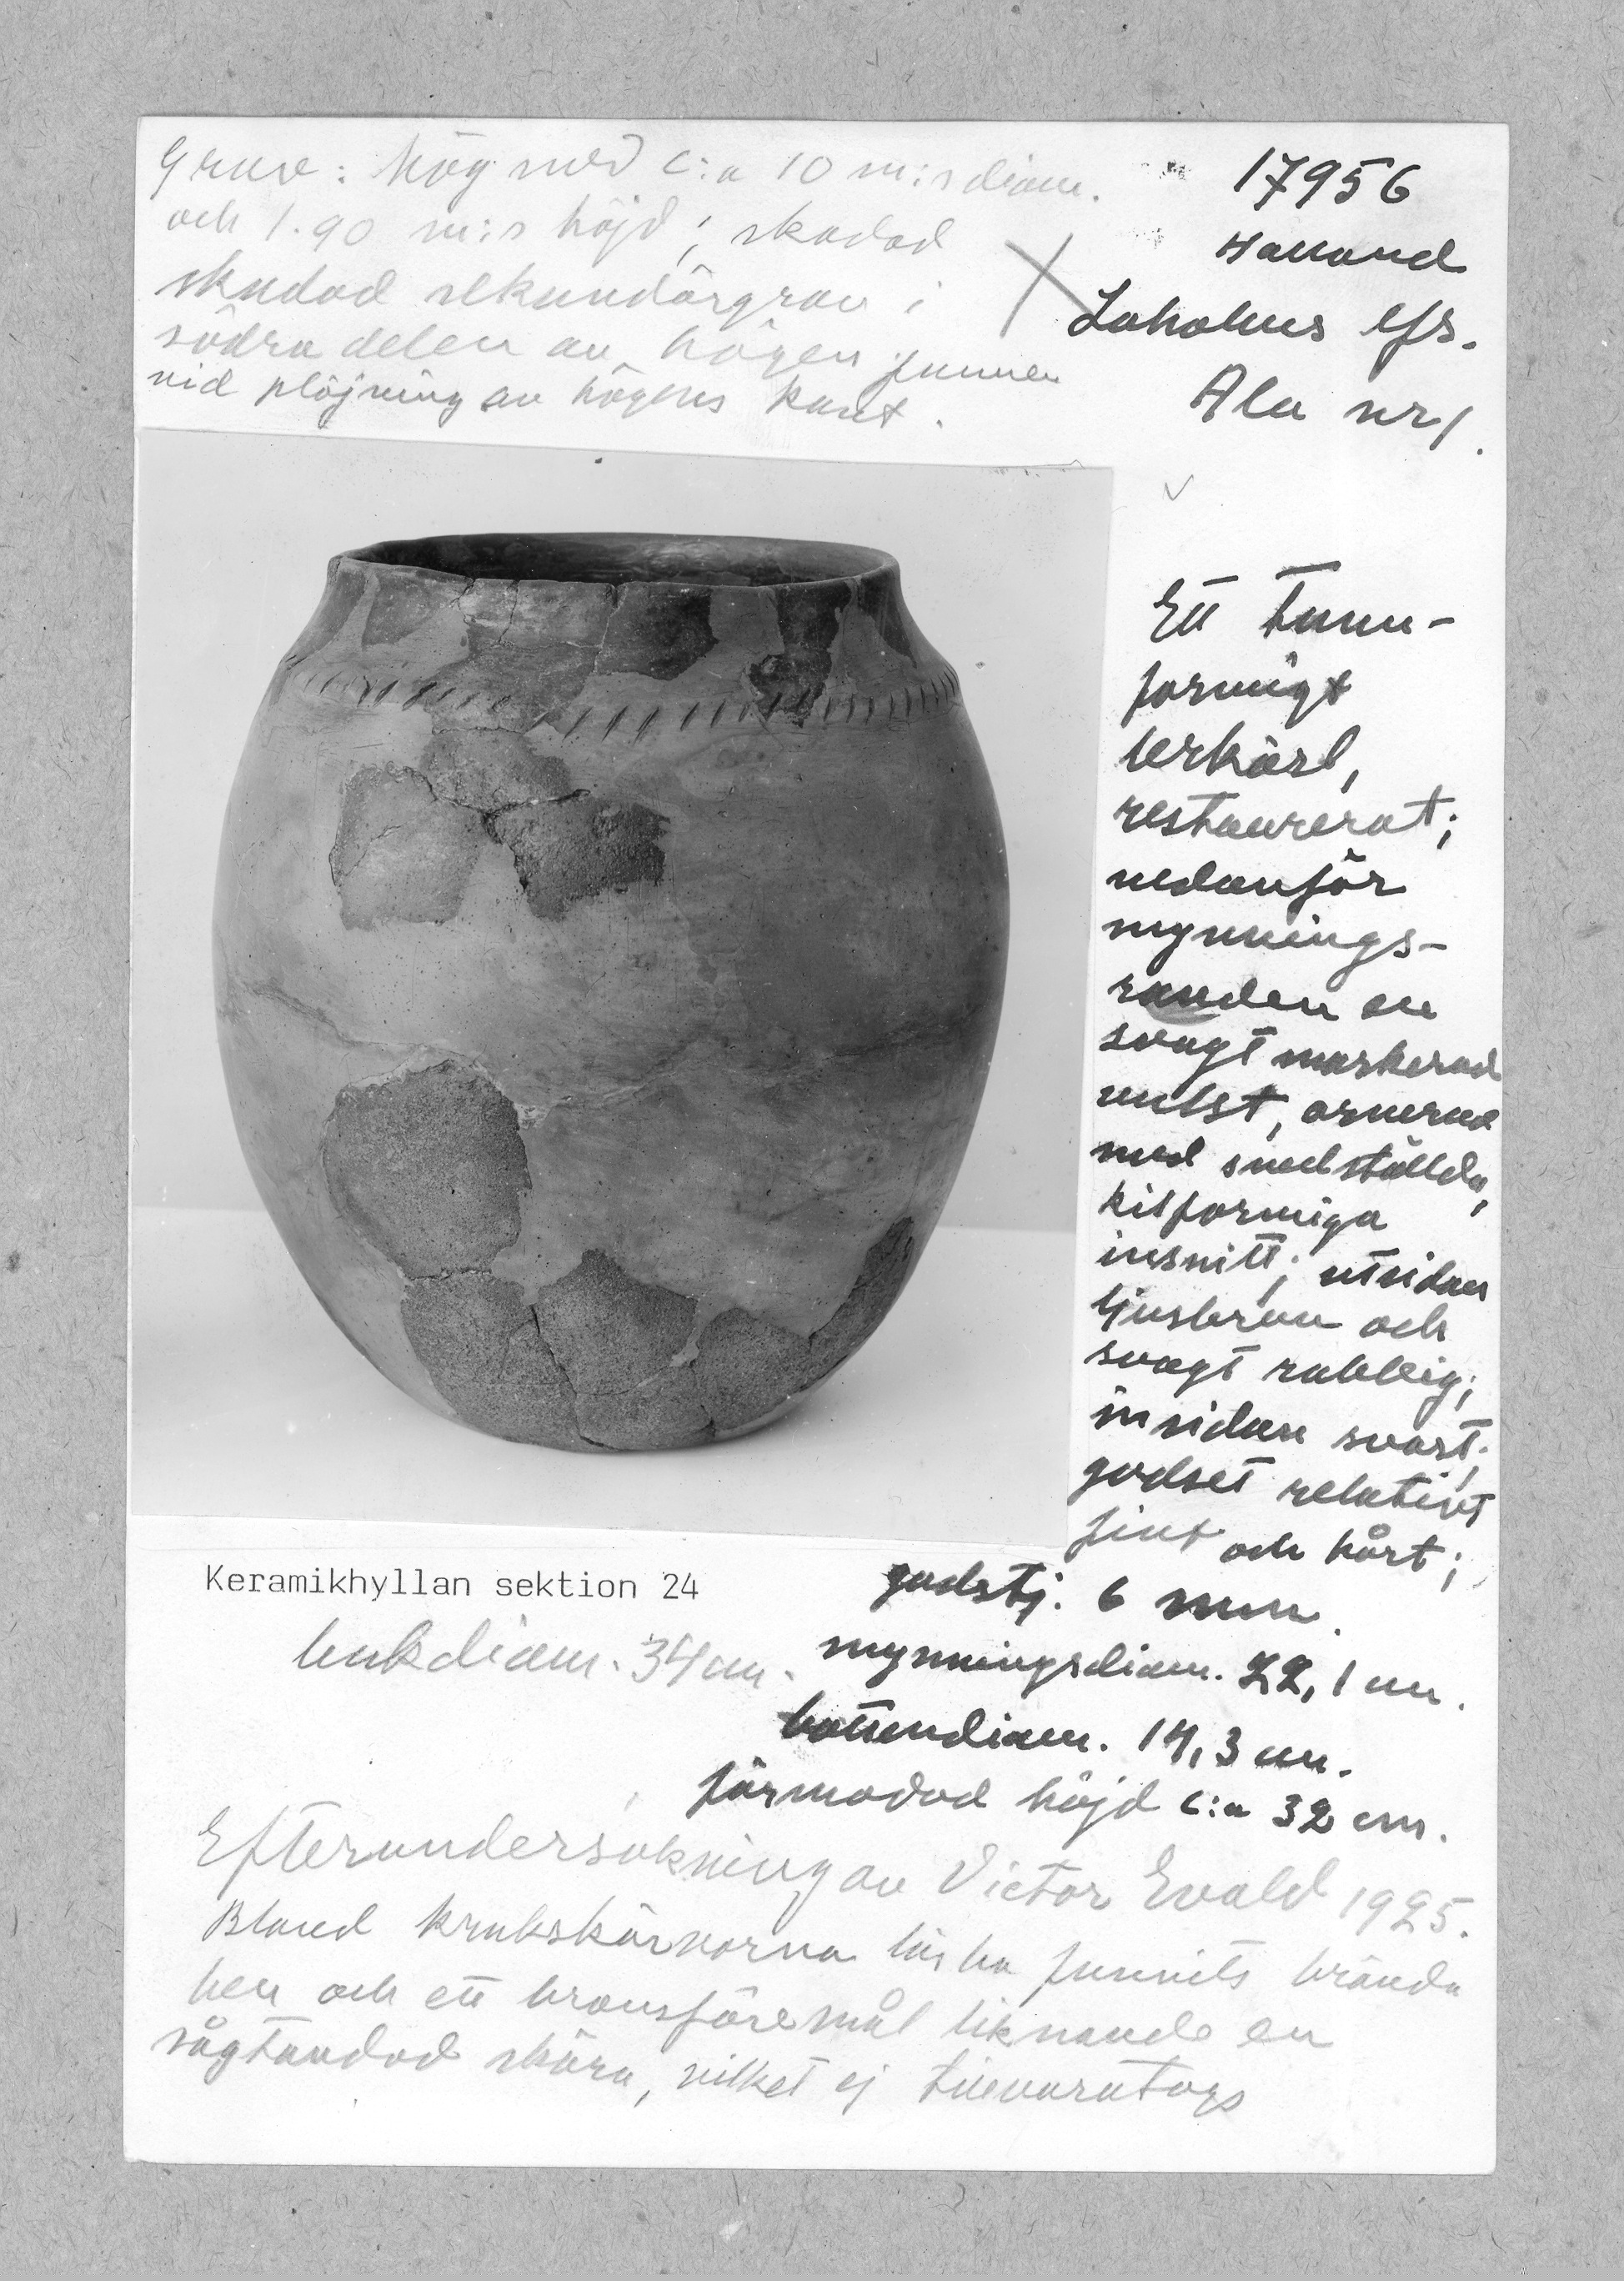 Grav: Hög med c:a 10 m:s diam.
och 1.90 m:s höjd; skadad
skadad sekundärgrav i
södra delen av högen funnen
vid plöjning av högens kant.
17956
Halland
Laholms lfs.
Ala nr 1.
Ett tunn-
formigt
lerkärl,
restaurerat;
nedanför
mynnings-
randen en
svagt markerad
vulst, ornerad
med snedställda,
kilformiga
insnitt; utsidan
ljusbrun och
svagt rabbig;
insidan svart;
godset relativt
fint och hårt;
godstj. 6 mm.
mynningsdiam. 22,1 cm.
bottendiam. 14,3 cm.
förmodad höjd c:a 32 cm.
Keramikhyllan sektion 24
bukdiam. 34 cm.
Efterundersökning av Victor Ewald 1925.
Bland krukskärvorna lär ha funnits brända
ben och ett bronsföremål liknande en
sågtandad skära, vilket ej tillvaratogs